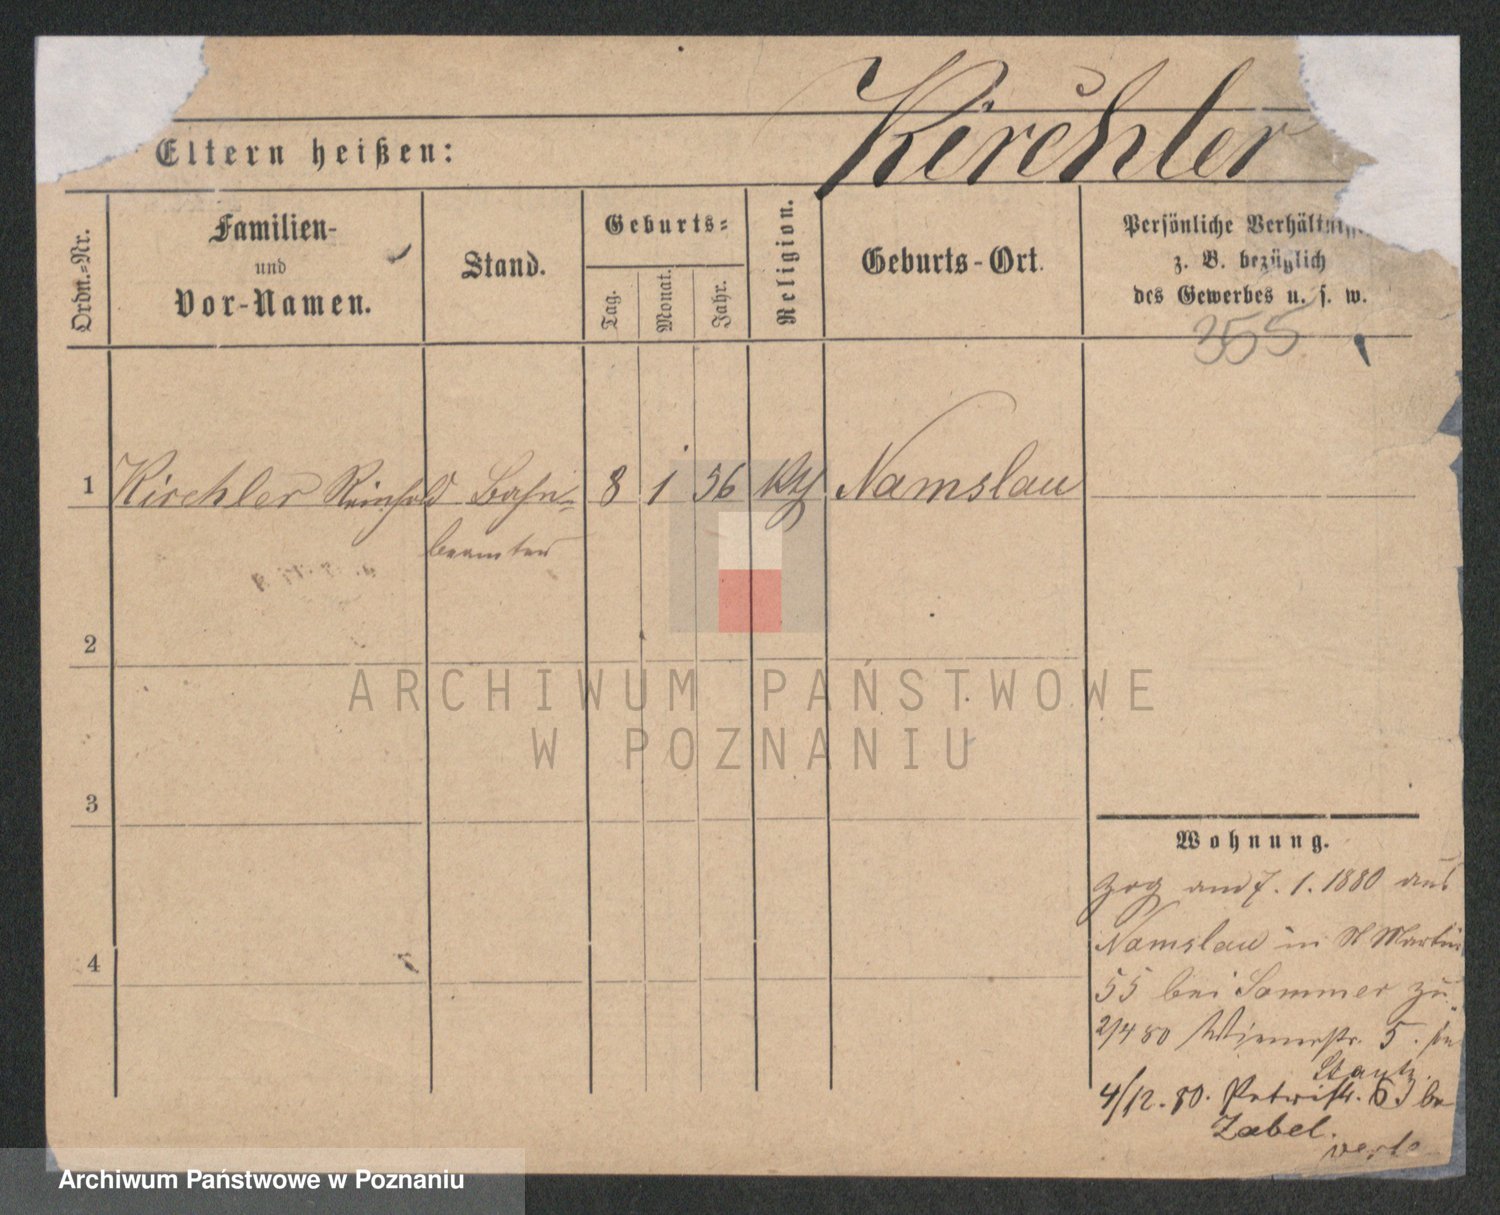 Kirchler
Eltern heißen:
Ordn.-Nr.
Familien-
und
Vor-Namen.
Stand.
Geburts-
Tag.
Monat.
Jahr.
Religion.
Geburts-Ort.
Persönliche Verhältnisse
z. B. bezüglich
des Gewerbes u. s. w.
355
1 Kirchler Reinhold Bahn- 8 1 56 Kth Namslau
beamter
2
3
4
Wohnung.
zog am 7. 1. 1880 aus
Namslau in St Martin
55 bei Sommer zu.
2/4 80 Wienerstr. 5.
4/12. 80. Petristr. bei
Zabel.
ARCHIWUM PAŃSTWOWE
W POZNANIU
Archiwum Państwowe w Poznaniu